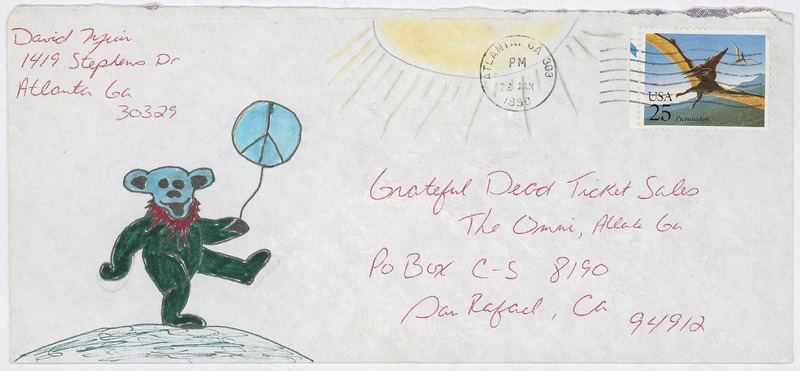 David
1419 Stephens Dr
Atlanta Ga
30329
ATLANTA, GA 303
PM
22 JAN
1990
USA
25
Pteranodon
Grateful Dead Ticket Sales
The Omni, Atlanta Ga
Po Box C-S 8190
San Rafael, Ca
94912